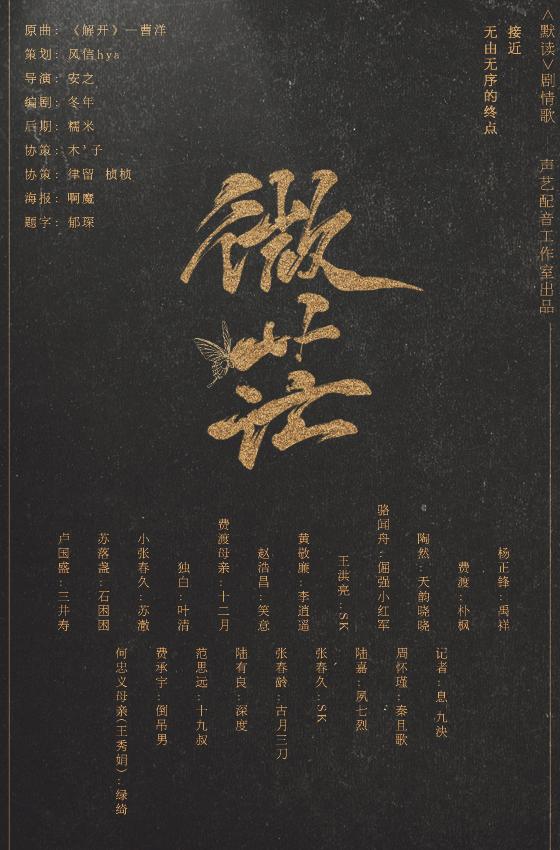 原曲：《解开》—曹洋
策划：风信hya
导演：安之
编剧：冬年
后期：糯米
协策：木’子
协策：律留 桢桢
海报：啊魔
题字：郁琛
<默读>剧情歌 声艺配音工作室出品
接近
无由无序的终点
微茫
杨正锋：禹祥
费渡：朴枫
陶然：天韵晓晓
骆闻舟：倔强小红军
王洪亮：SK
黄敬廉：李逍遥
赵浩昌：笑意
费渡母亲：十二月
独白：叶清
小张春久：苏澈
苏落盏：石困困
卢国盛：三井寿
记者：息九泱
周怀瑾：秦且歌
陆嘉：夙七烈
张春久：SK
张春龄：古月三刀
陆有良：深度
范思远：十九叔
费承宇：倒吊男
何忠义母亲(王秀娟)：绿绮